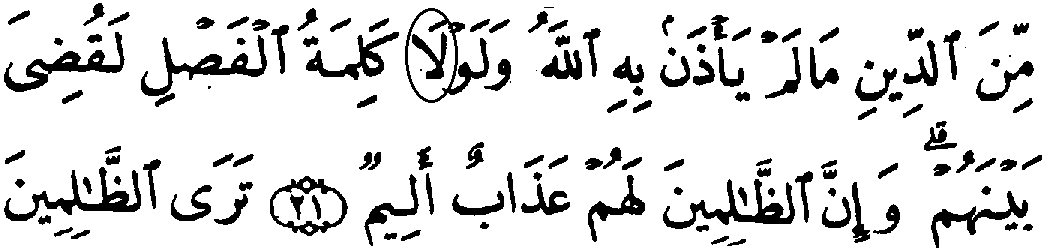 مِّنَ ٱلدِّينِ مَا لَمْ يَأْذَنۢ بِهِ ٱللَّهُ ۚ وَلَوْلَا كَلِمَةُ ٱلْفَصْلِ لَقُضِىَ
بَيْنَهُمْ ۗ وَإِنَّ ٱلظَّـٰلِمِينَ لَهُمْ عَذَابٌ أَلِيمٌ ﴿٢١﴾ تَرَى ٱلظَّـٰلِمِينَ